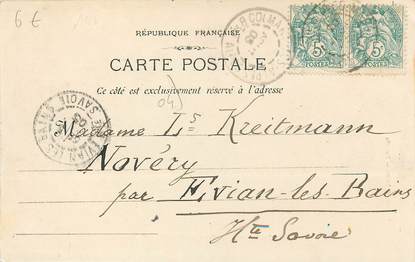 6 €
RÉPUBLIQUE FRANÇAISE
CARTE POSTALE
Ce côté est exclusivement réservé à l'adresse
COLMA
5c 5c
POSTES POSTES
04)
EVIAN LES BAINS
SAVOIE
Madame Ls Kreitmann
Novéry
par Evian-les-Bains
Hte Savoie